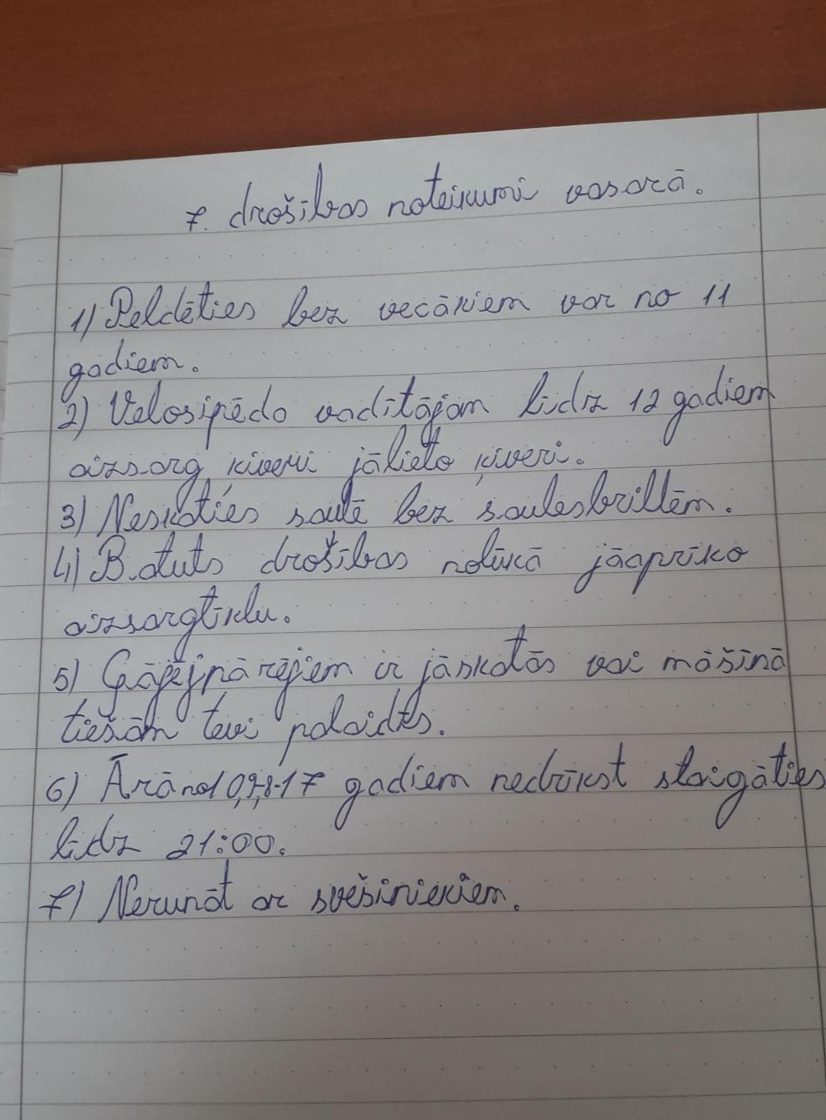 7. drošības noteikumi vasarā.
1) Peldēties bez vecākiem var no 11
gadiem.
2) Velosipēdo vadītājam līdz 12 gadiem
aizsarg ķiveri jālieto ķiveri.
3) Neskaties saulē bez saulesbrillēm.
4) Batuts drošības nolūkā jāaprīko
aizsargtīklu.
5) Gājējpārējiem ir jāskatās vai māšīnā
tiešām tevi palaidīs.
6) Ārā gadiem nedrīkst staigāties
līdz 21:00.
7) Nerunāt ar svešiniekiem.